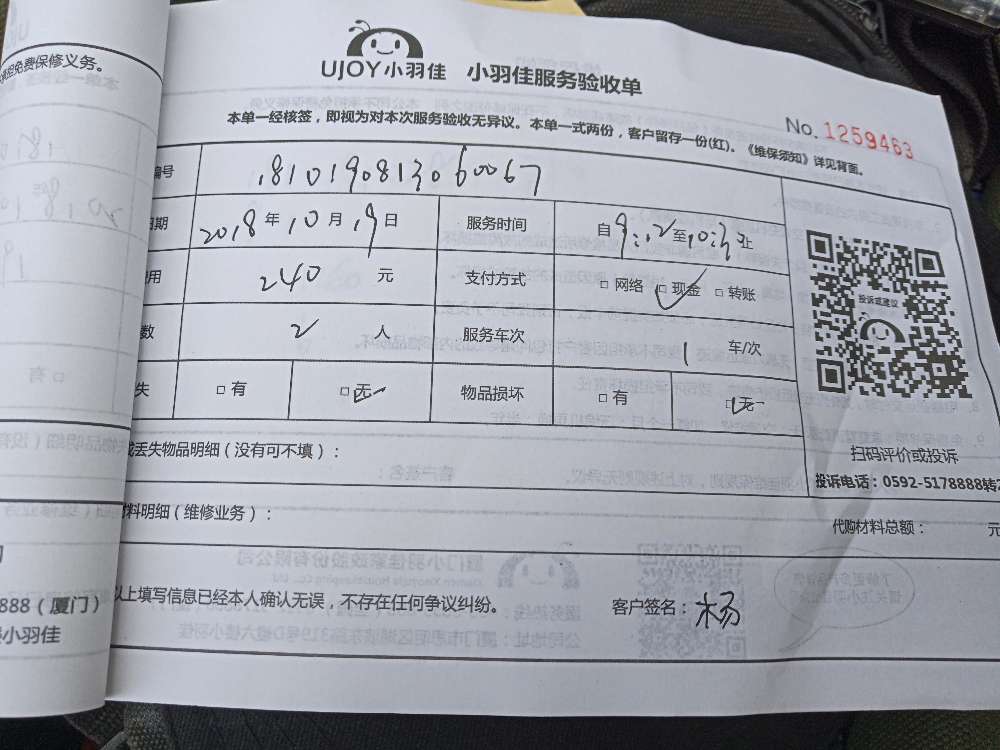 免费保修义务。
UJOY小羽佳 小羽佳服务验收单
No. 1259463
本单一经核签，即视为对本次服务验收无异议。本单一式两份，客户留存一份(红)。《维保须知》详见背面。
编号 181019081306 0067
日期 2018 年 10 月 19 日 服务时间 自 9:12 至 10:2 止
用 240 元 支付方式 □ 网络 ☑ 现金 □ 转账
数 2 人 服务车次 1 车/次
失 □ 有 ☑ 无 物品损坏 □ 有 ☑ 无
投诉或建议
扫码评价或投诉
投诉电话：0592-5178888转2
或丢失物品明细（没有可不填）：
材料明细（维修业务）：
代购材料总额： 元
以上填写信息已经本人确认无误，不存在任何争议纠纷。
客户签名：杨
888（厦门）
小羽佳
□ 有